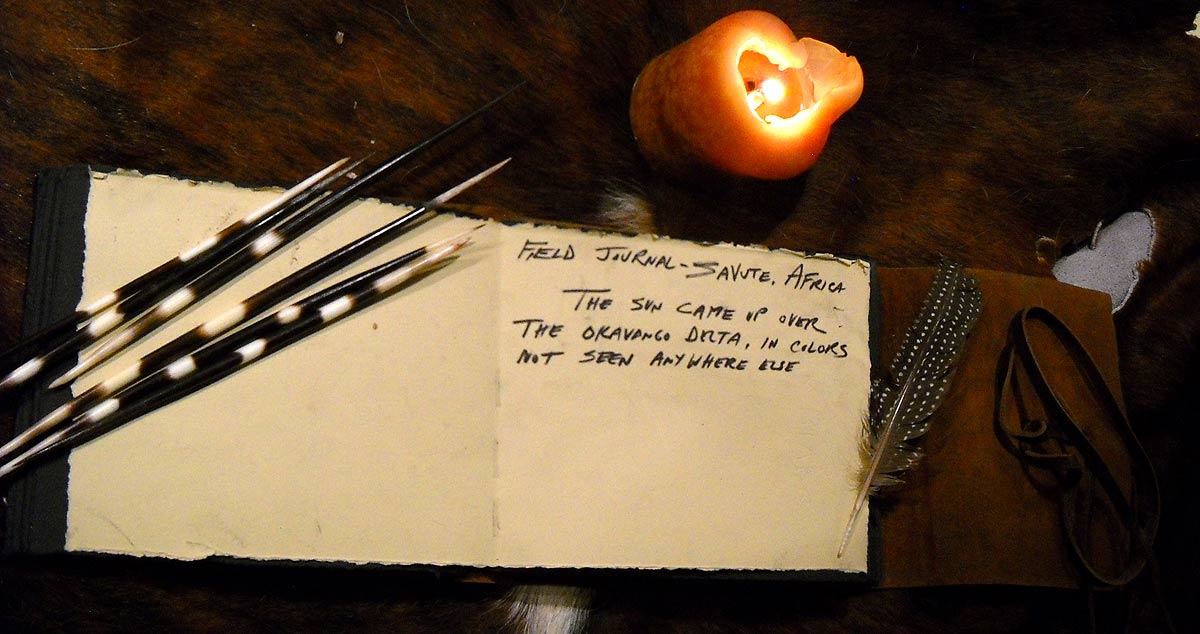 FIELD JOURNAL - SAVUTE, AFRICA
THE SUN CAME UP OVER
THE OKAVANGO DELTA, IN COLORS
NOT SEEN ANYWHERE ELSE